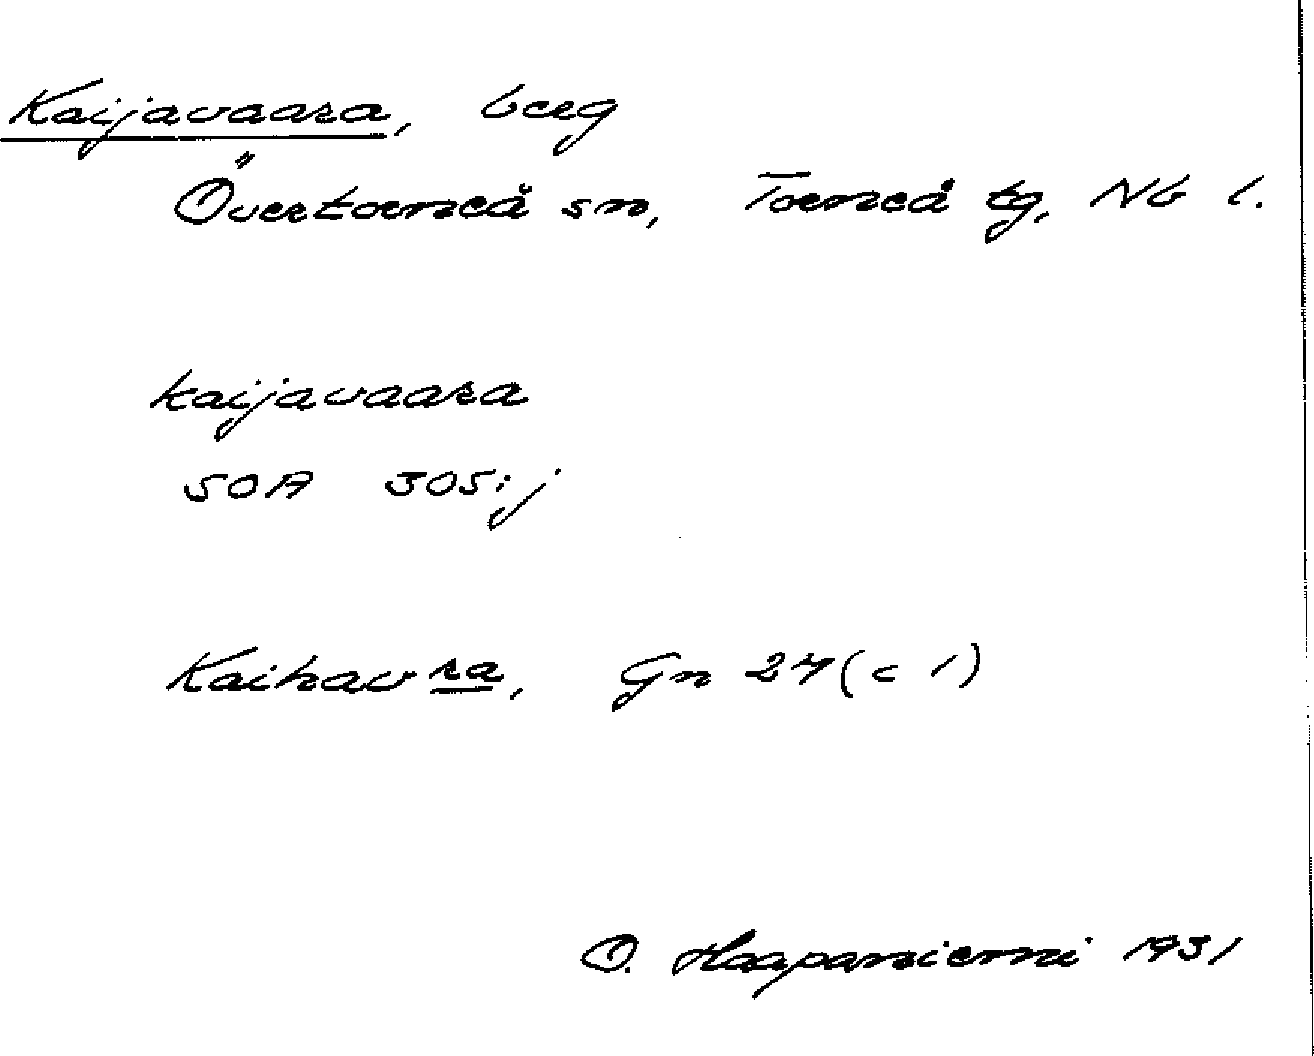 Kaijavaara, berg
Övertorneå sn, Torneå tg, Nb l.
kaijavaara
SOA 305:j
Kaihavra, Gn 27(c 1)
O. Haapaniemi 1931